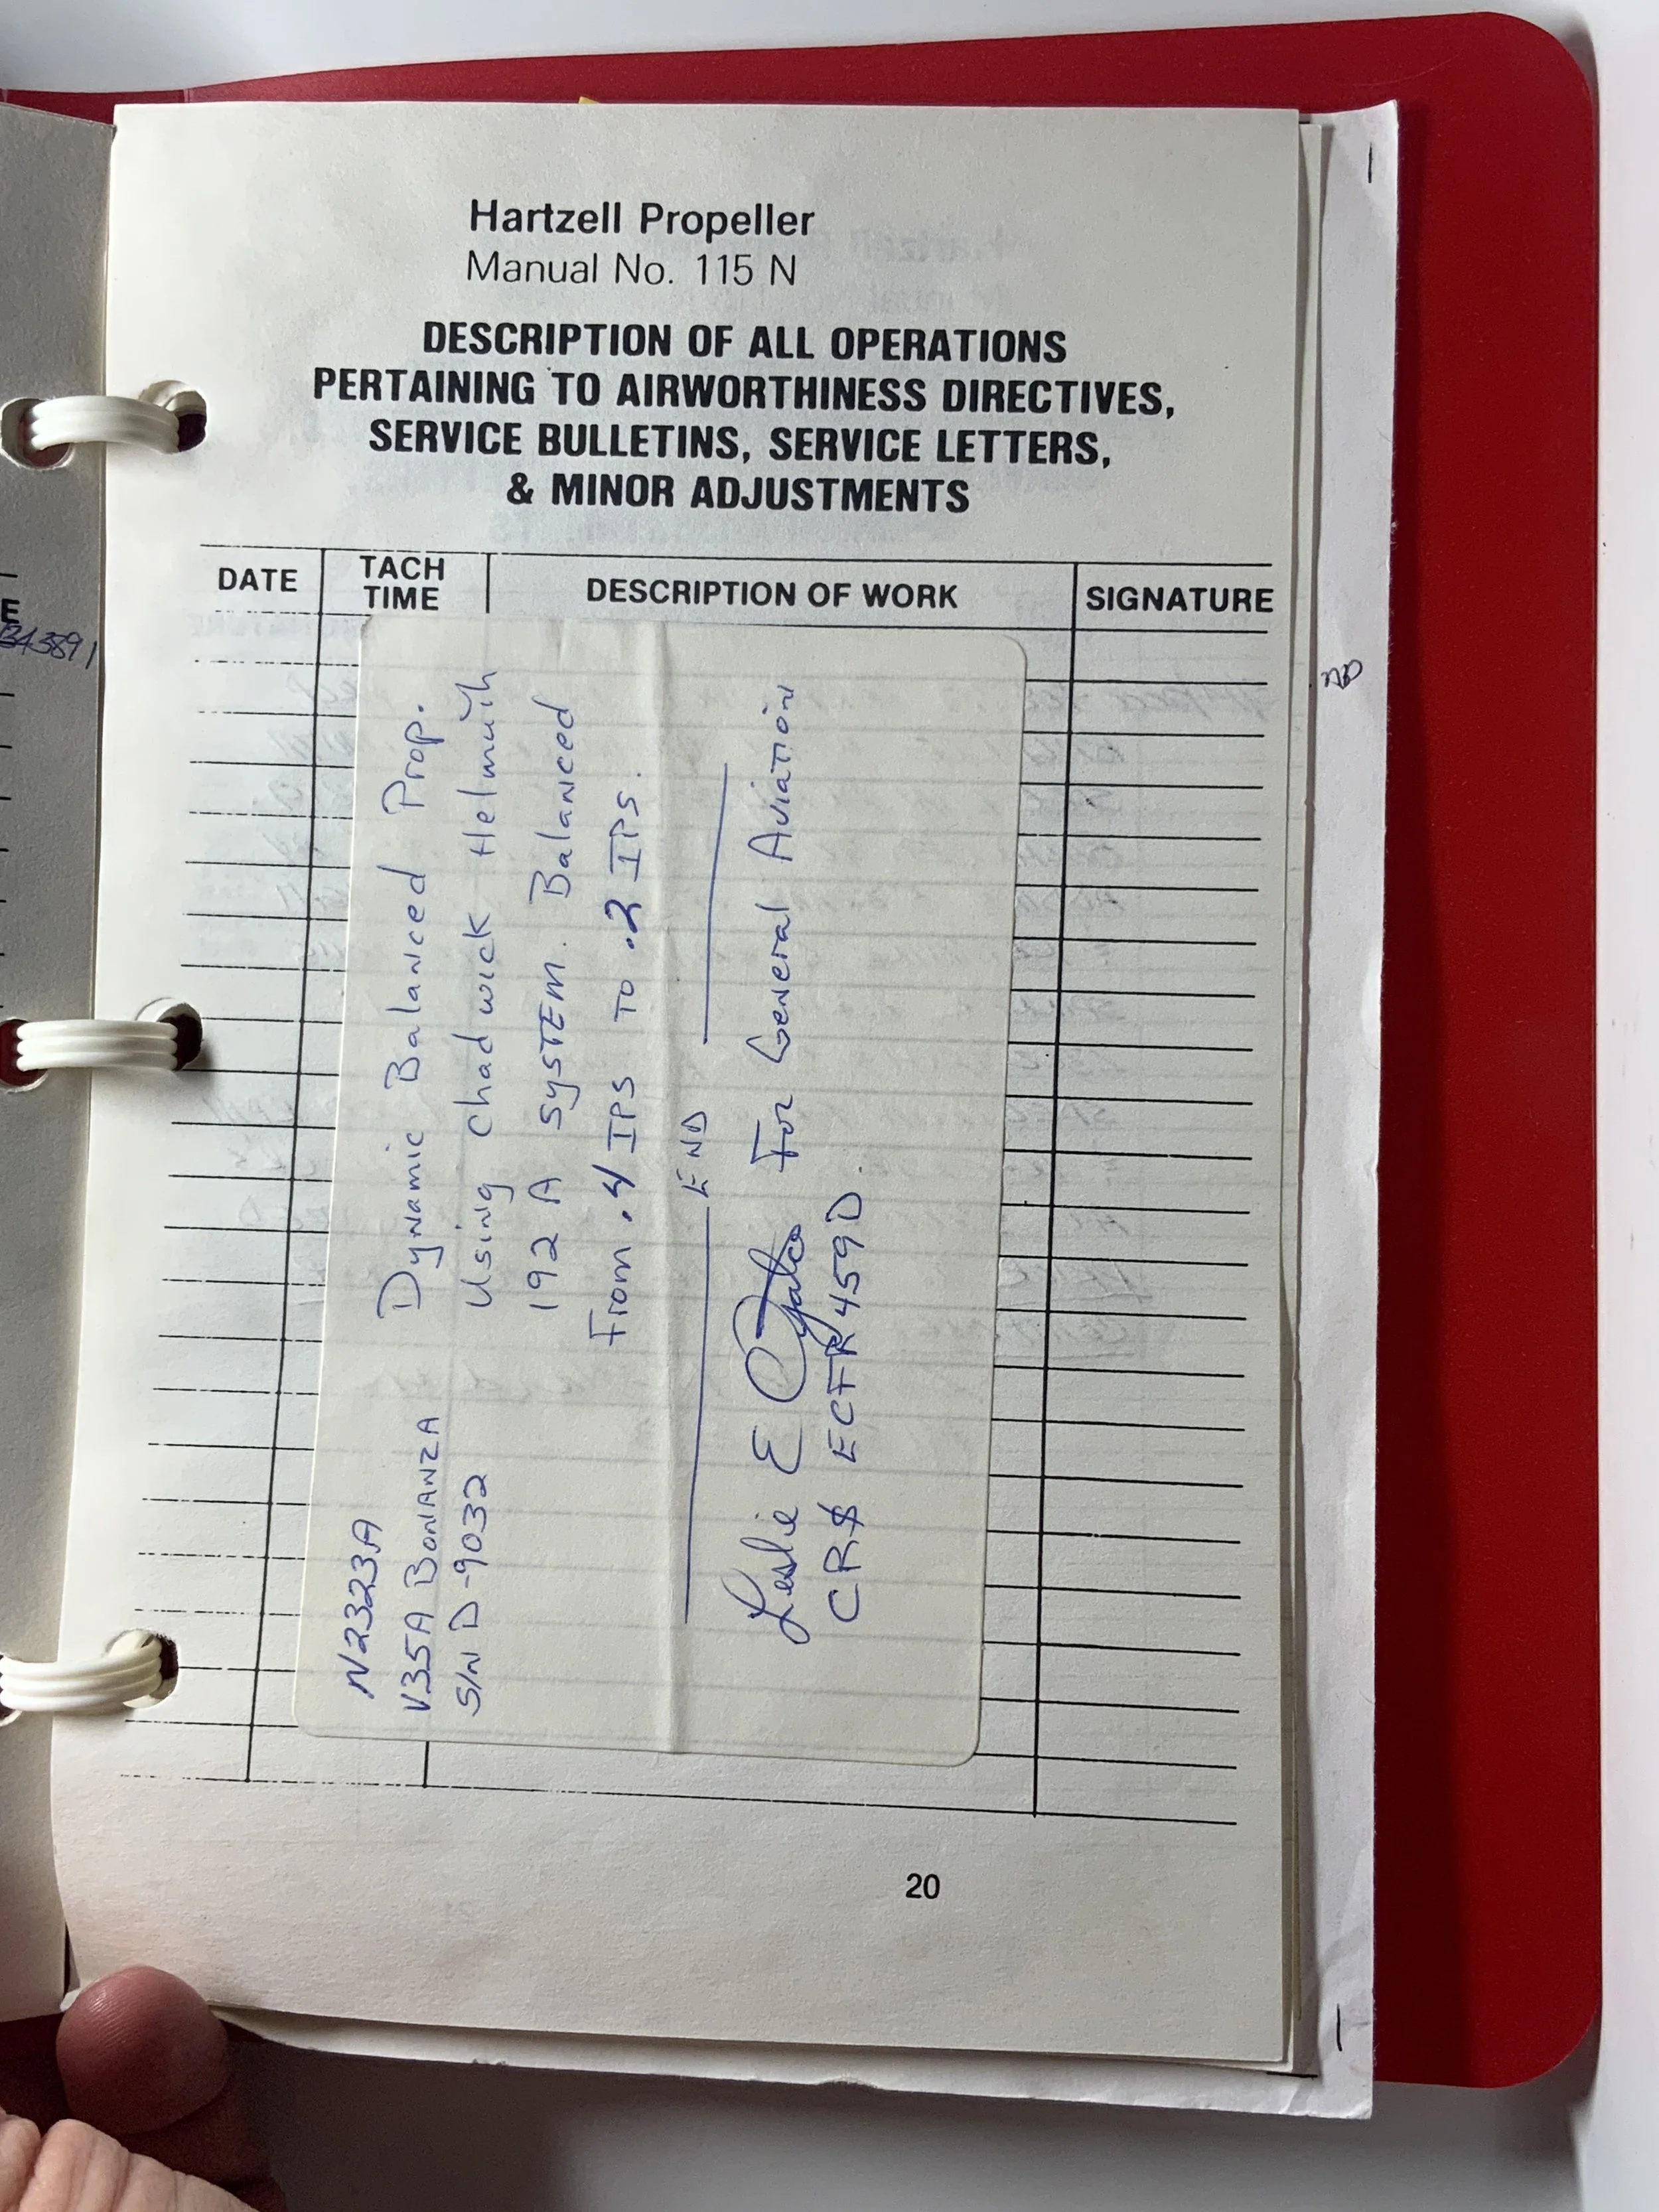 Hartzell Propeller
Manual No. 115 N
DESCRIPTION OF ALL OPERATIONS
PERTAINING TO AIRWORTHINESS DIRECTIVES,
SERVICE BULLETINS, SERVICE LETTERS,
& MINOR ADJUSTMENTS
DATE
TACH
TIME
DESCRIPTION OF WORK
SIGNATURE
N2323A
V35A BONANZA
S/N D-9032
Dynamic Balanced Prop.
Using Chadwick Helmuth
192 A SYSTEM. Balanced
From .4 IPS TO .2 IPS.
END
Leslie E For General Aviation
CRS ECFR459D.
20